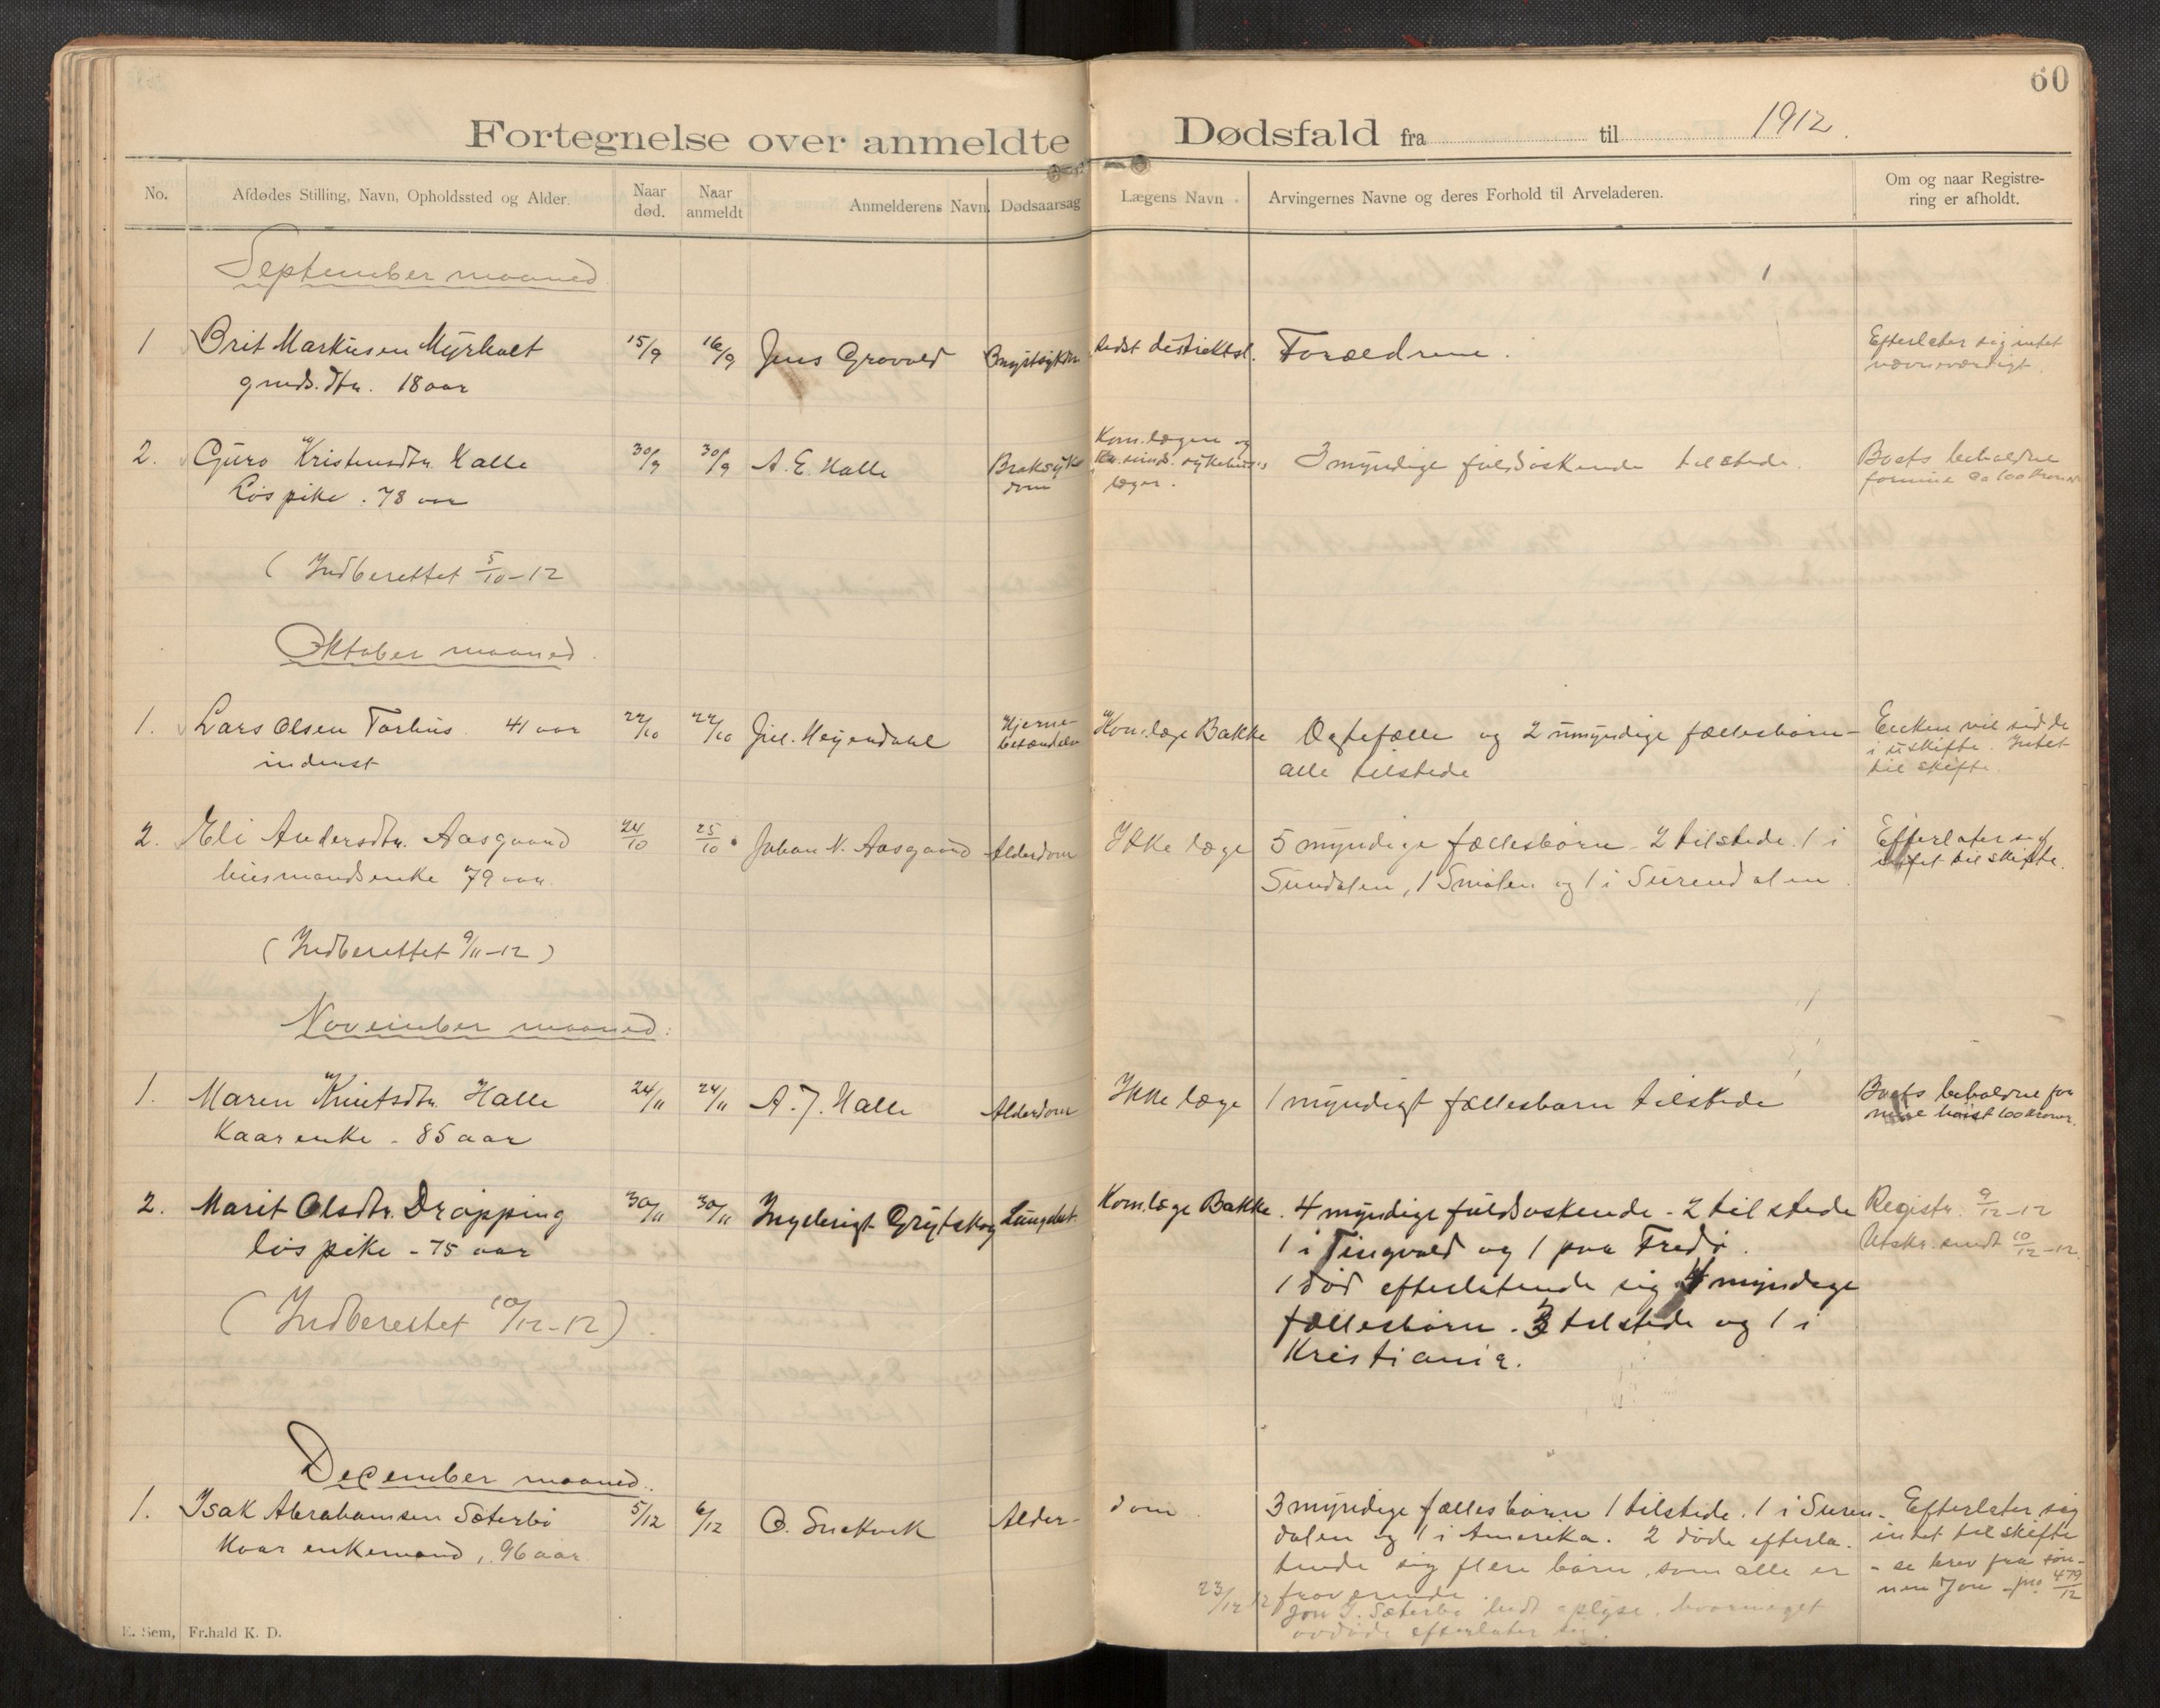 60
Fortegnelse over anmeldte Dødsfald fra til 1912.
No.
Afdødes Stilling, Navn, Opholdssted og Alder.
Naar død.
Naar anmeldt
Anmelderens Navn.
Dødsaarsag
Lægens Navn.
Arvingernes Navne og deres Forhold til Arveladeren.
Om og naar Registrering er afholdt.
September maaned
1 Brit Markusen Myrholt 15/9 16/9 Jens Gravvold Brystsykdm distriktsl. Forældrene. Efterlater sig intet
gmds. dtr. 18 aar nævneværdigt.
2. Guro Kristensdtr. Halle 30/9 30/9 A. E. Halle Braksyke Kom.lægen og 3 myndige fuldsøskende tilstede. Boets beholdne
Løs pike. 78 aar dom Kr.sunds. sykehus's formue ca 100 kroner
læger.
( Indberettet 5/10-12
Oktober maaned.
1. Lars Olsen Torhus. 41 aar 22/10 22/10 Jul. Heyerdahl Hjerne- Kom.læge Bakke Ægtefælle og 2 umyndige fællesbørn- Enken vil sidde
inderst betændelse alle tilstede i uskifte. Intet
til skifte.
2. Eli Andersdtr. Aasgaard 24/10 25/10 Johan N. Aasgaard Alderdom Ikke læge 5 myndige fællesbørn- 2 tilstede. 1 i Efterlater sig
husmandsenke 79 aar. Sundalen, 1 Smølen og 1 i Surendalen. intet til skifte.
( Indberettet 9/11-12)
November maaned.
1. Maren Knutsdtr. Halle 24/11 24/11 A. J. Halle Alderdom Ikke læge 1 myndigt fællesbarn tilstede Boets beholdne for
Kaarenke - 85 aar mue høist 100 kroner.
2. Marit Olsdtr. Drøpping 30/11 30/11 Ingebrigt Grytskog Lungebet. Kom.læge Bakke. 4 myndige fuldsøskende - 2 tilstede Registr. 9/12-12
løs pike - 75 aar 1 i Tingvold og 1 paa Fredø. Utskr. sendt 10/12-12.
1 død efterlatende sig 4 myndige
( Indberettet 10/12-12) fællesbørn. 3 tilstede og 1 i
Kristiania.
December maaned.
1. Isak Abrahamsen Sæterbø 5/12 6/12 O. Snekvik Alder- dom. 3 myndige fællesbørn 1 tilstede. 1 i Suren- Efterlater sig
Kaar enkemand, 96 aar. dalen og 1 i Amerika. 2 døde efterla- intet til skifte
tende sig flere børn, som alle er - se brev fra søn-
23/12 12 fraværende. nen Jon - jno 479/12
Jon I. Sæterbø bedt oplyse, hvormeget
avdøde efterlater sig.
E. Sem, Fr.hald K. D.